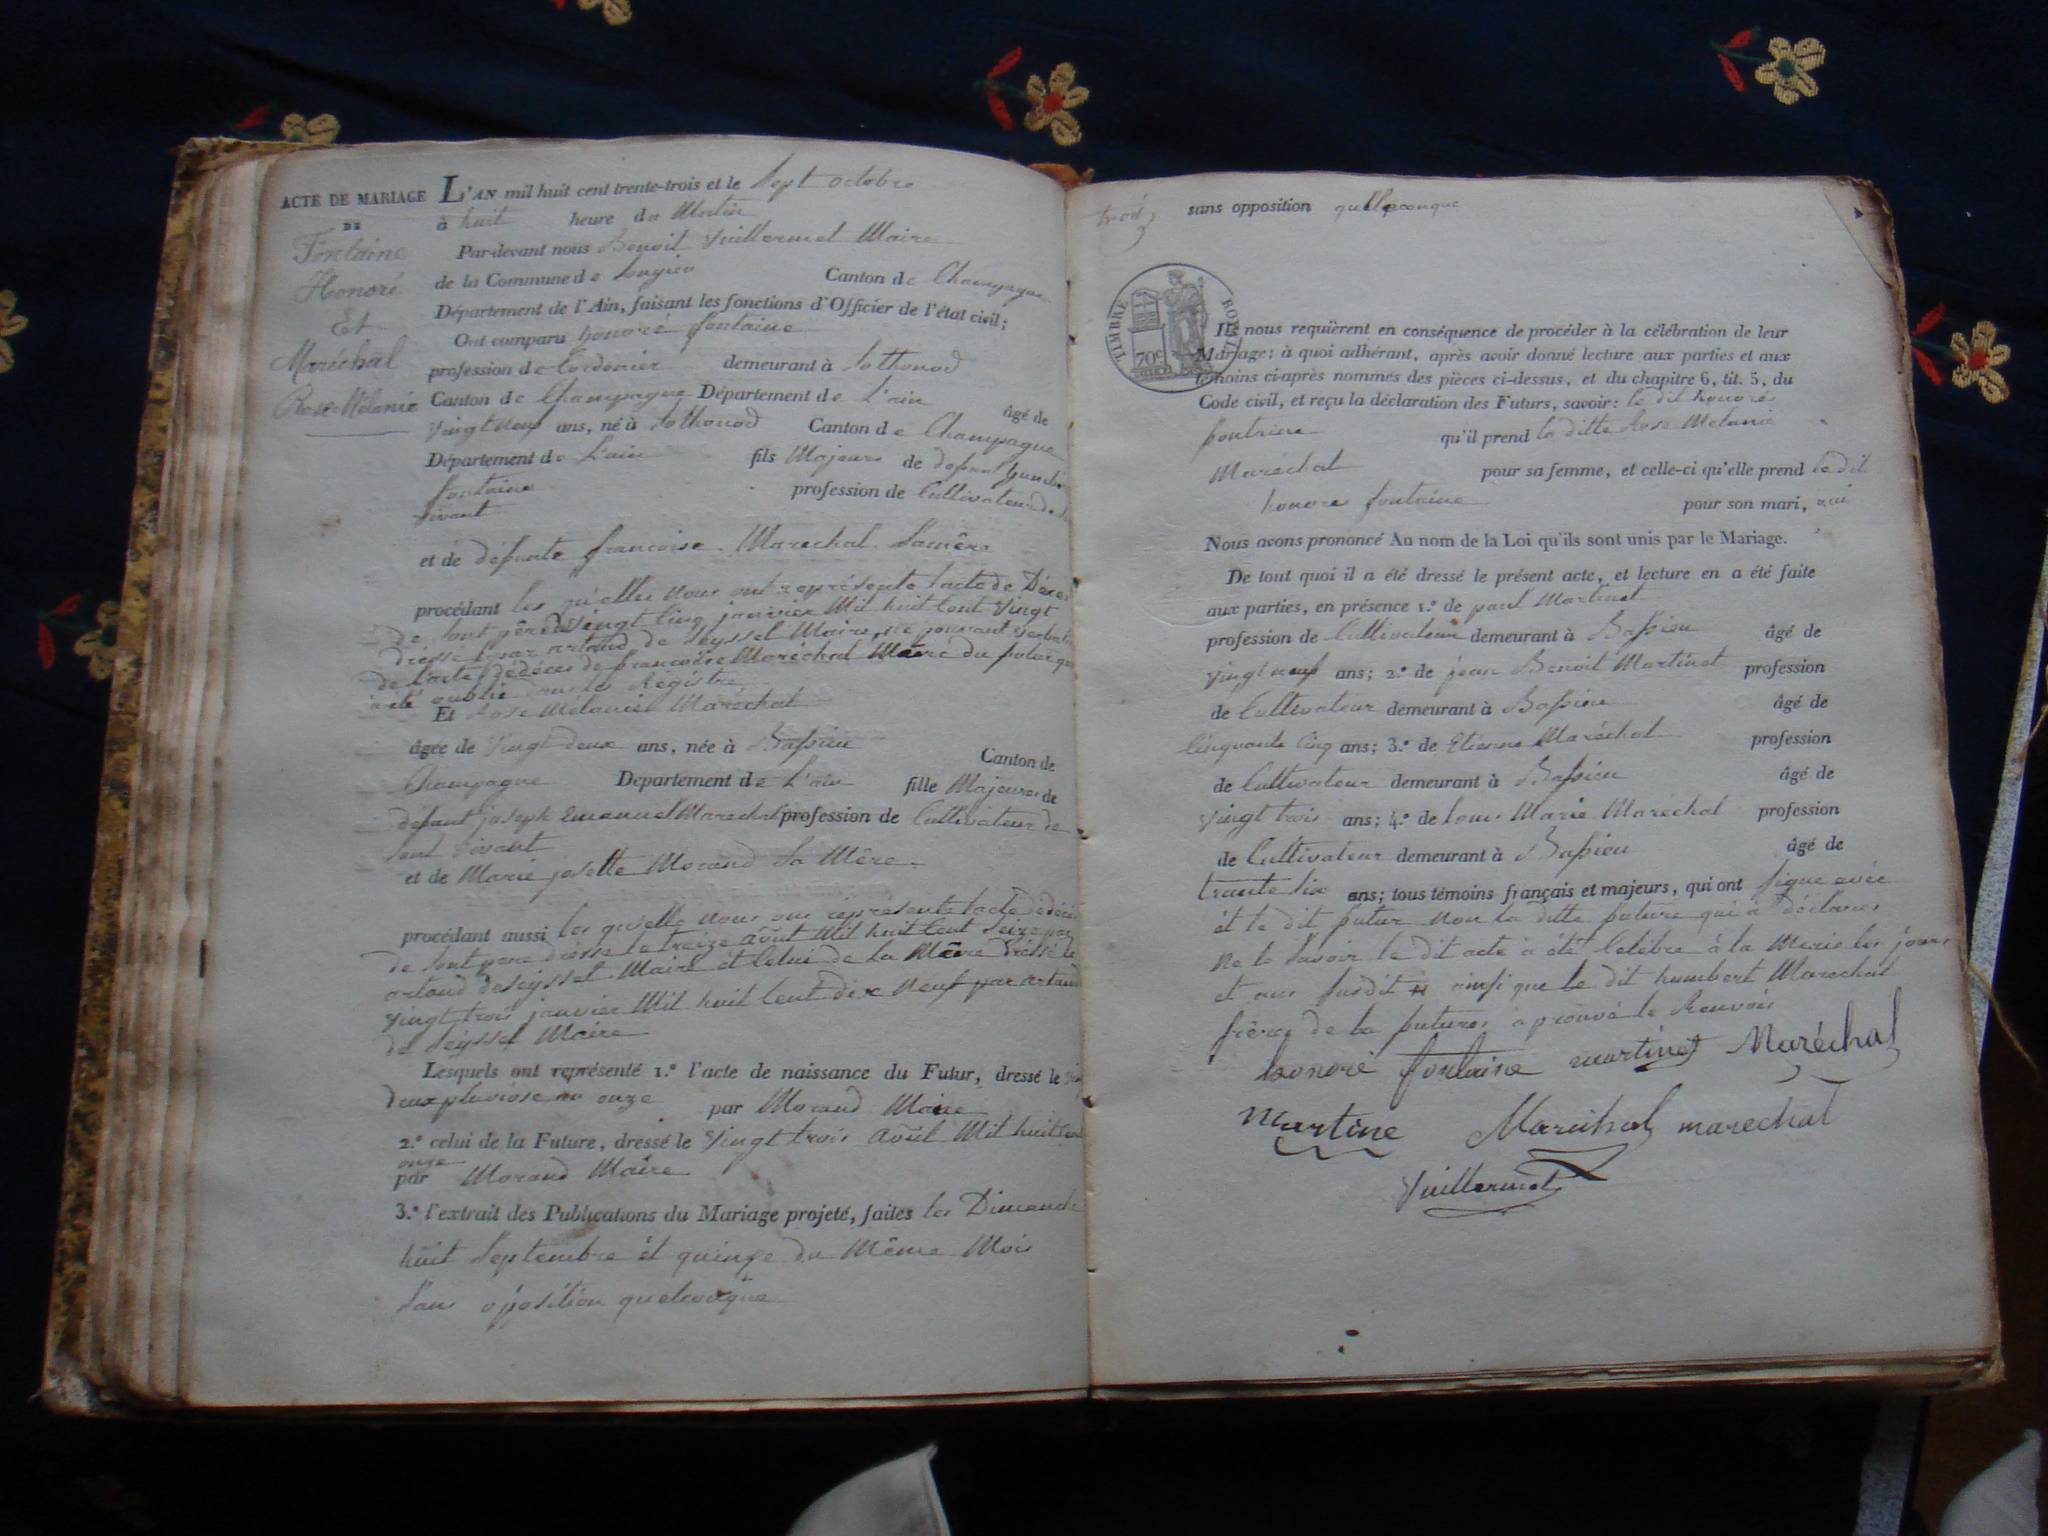 ACTE DE MARIAGE
DE
Fontaine
Honoré
Et
Maréchal
Rose Mélanie
L'AN mil huit cent trente-trois et le Sept octobre
à huit heure du Matin
Par-devant nous Benoit Vuillermet Maire
de la Commune de Songieu Canton de Champagne
Département de l'Ain, faisant les fonctions d'Officier de l'état civil;
Ont comparu honoré fontaine
profession de Cordonier demeurant à Sothonod
Canton de Champagne Département de L'ain âgé de
Vingt neuf ans, né à Sothonod Canton de Champagne
Département de L'ain fils Majeure de defunt humbert
fontaine profession de Cultivateur de Son
vivant
et de défunte françoise Marechal Samère
procédant les qu'elles nous ont représenté lacte de Décès
de Sont père du Vingt Cinq janvier Mil huit Cent Vingt
dressé par artaud de Seyssel Maire ne pouvant
de Lacte dédécès de francoise Maréchal Mère du futur que
à été oublié dans les Registre
Et Rose Mélanie Maréchal
âgée de Vingt deux ans, née à Bassieu Canton de
Champagne Departement de L'ain fille Majeure de
défunt joseph Emanuel Marechal profession de Cultivateur de
Sont vivant
et de Marie josette Morand Sa Mêre
procédant aussi les quelle nous ons représenté lacte dedécès
de Sont pere dressé le treize août Mil huit Cent Seize par
artaud deseyssel Maire et Celui de La Mère Dréssé le
vingt trois janvier Mil huit Cent dix Neuf par artaud
de Seyssel Maire
Lesquels ont représenté 1.º l'acte de naissance du Futur, dressé le
deux pluviose an onze par Morand Maire
2.º celui de la Future, dressé le Vingt trois Août Mil huit Cent
onze
par Morand Maire
3.º l'extrait des Publications du Mariage projeté, faites les Dimanche
huit Septembre ét quinze du Mème Mois
Sans oposition quelcoique
sans opposition quelleconque
TIMBRE ROYAL
70 c
Ils nous requièrent en conséquence de procéder à la célébration de leur
Mariage; à quoi adhérant, après avoir donné lecture aux parties et aux
témoins ci-après nommés des pièces ci-dessus, et du chapitre 6, tit. 5, du
Code civil, et reçu la déclaration des Futurs, savoir: le dit honoré
fontaine qu'il prend la ditte Rose Melanie
Maréchal pour sa femme, et celle-ci qu'elle prend le dit
honore fontaine pour son mari,
Nous avons prononcé Au nom de la Loi qu'ils sont unis par le Mariage.
De tout quoi il a été dressé le présent acte, et lecture en a été faite
aux parties, en présence 1.º de paul Martinet
profession de Cultivateur demeurant à Bassieu âgé de
vingt neuf ans; 2.º de jean Benoit Martinet profession
de Cultivateur demeurant à Bassieu âgé de
Cinquante Cinq ans; 3.º de Etienne Maréchal profession
de Cultivateur demeurant à Bassieu âgé de
vingt trois ans; 4.º de Louis Marie Maréchal profession
de Cultivateur demeurant à Bassieu âgé de
trente Six ans; tous témoins français et majeurs, qui ont signe avéc
ét le dit futur Non la ditte future qui a déclaré
Ne le Savoir le dit acte à été Célébre à la Merie les jours
et ans Susdit # ainsi que le dit humbert Marechal
frère de la future aprouvé le Renvois
honoré fontaine martinet Maréchal
martine Maréchal marechal
Vuillermet